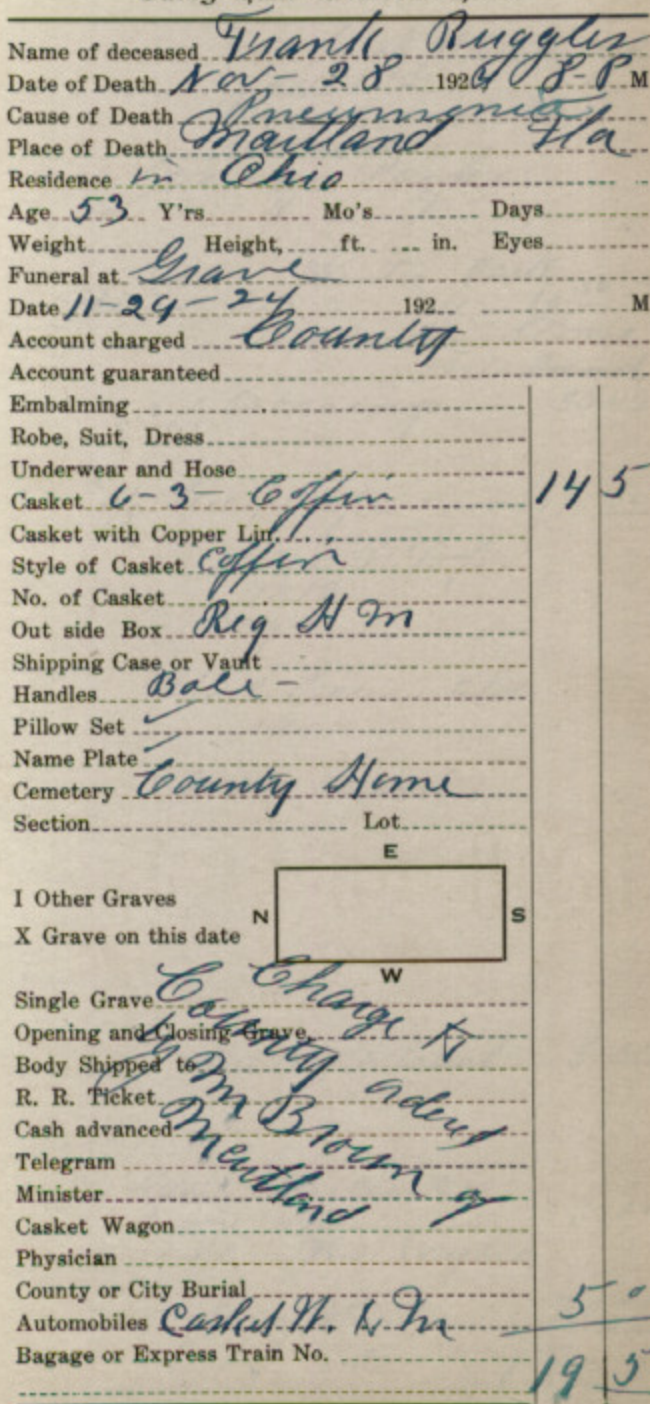 Name of deceased Frank Ruggles
Date of Death Nov - 28 1924 8-P M
Cause of Death Pneumonia
Place of Death Maitland Fla
Residence in Ohio
Age 53 Y'rs Mo's Days
Weight Height, ft. in. Eyes
Funeral at Grave
Date 11-29-24 192 M
Account charged County
Account guaranteed
Embalming
Robe, Suit, Dress
Underwear and Hose
Casket 6-3- Coffin 14 5
Casket with Copper Lin.
Style of Casket Coffin
No. of Casket
Out side Box Reg H m
Shipping Case or Vault
Handles Bale -
Pillow Set ✓
Name Plate ✓
Cemetery County Home
Section Lot
E
I Other Graves
N S
X Grave on this date
W
Single Grave
Opening and Closing Grave
Body Shipped to
R. R. Ticket
Cash advanced
Telegram
Minister
Charge to
County
M Brown of
Maitland
Casket Wagon
Physician
County or City Burial
Automobiles Casket W. to M 5 0
Bagage or Express Train No.
19 5